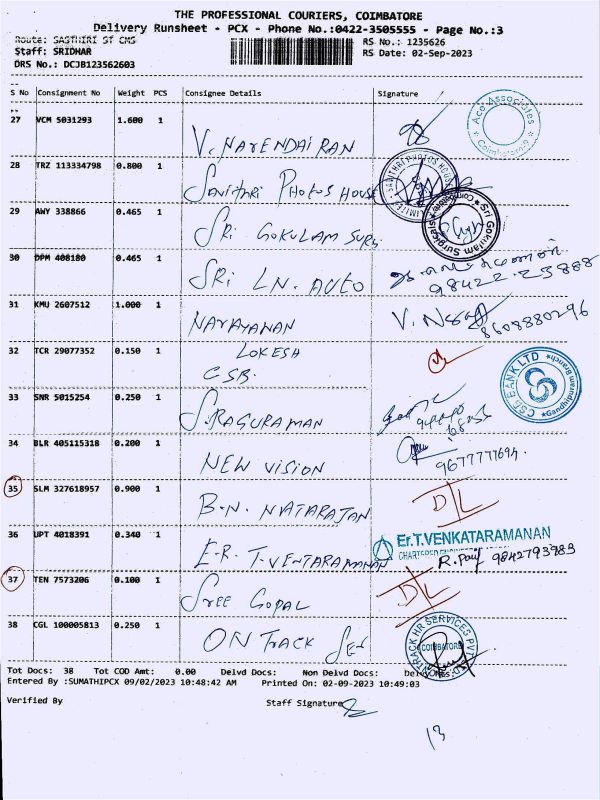 THE PROFESSIONAL COURIERS, COIMBATORE
Delivery Runsheet - PCX - Phone No.:0422-3505555 - Page No.:3
Route: SASTHIRI ST CMS
RS No.: 1235626
Staff: SRIDHAR
RS Date: 02-Sep-2023
DRS No.: DCJB123562603
S No Consignment No Weight PCS Consignee Details Signature
27 VCM 5031293 1.600 1
V. NARENDAIRAN
Aco Associates
Coimbatore-9
28 TRZ 113334798 0.800 1
Savithri Photos House
29 AWY 338866 0.465 1
SRI GOKULAM SURG.
Sri Gokulam Surgicals
Coimbatore
30 DPM 408180 0.465 1
SRI LN. AUTO
98422.23888
31 KMU 2607512 1.000 1
NARAYANAN
8608880296
32 TCR 29077352 0.150 1
LOKESH
CSB.
CSB BANK LTD
Gandhipuram Branch
33 SNR 5015254 0.250 1
S. RAGURAMAN
34 BLR 405115318 0.200 1
NEW VISION
9677771694.
35 SLM 327618957 0.900 1
B.N. NVATARAJAN
D/L
36 UPT 4018391 0.340 1
E.R. T. VENTARAMANAN
Er.T.VENKATARAMANAN
CHARTERED
R. Paul 9842793983
37 TEN 7573206 0.100 1
SREE GOPAL
D/L
38 CGL 100005813 0.250 1
ONTRACK
TRACK HR SERVICES PVT
COIMBATORE
Tot Docs: 38 Tot COD Amt: 0.00 Delvd Docs: Non Delvd Docs:
Entered By :SUMATHIPCX 09/02/2023 10:48:42 AM Printed On: 02-09-2023 10:49:03
Verified By Staff Signature
13